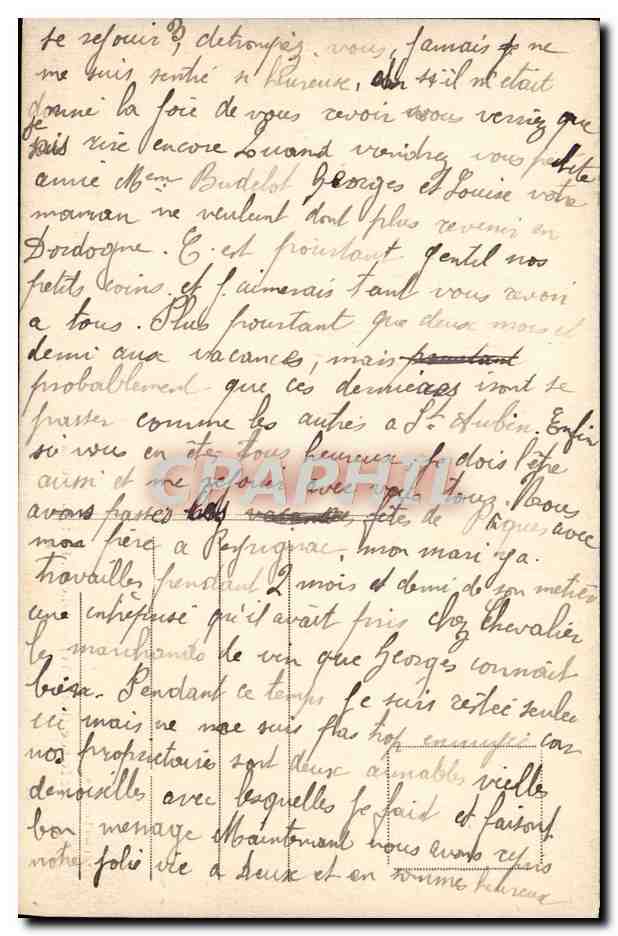 se rejouir ?, detrompez vous, jamais je ne
me suis sentie si heureuse, s'il m'était
donné la joie de vous revoir vous verriez que
je sais rire encore Quand viendrez vous petite
amie Mem Budelot Georges et Louise votre
maman ne veulent dont plus revenir en
Dordogne. C. est pourstant gentil nos
petits coins et j'aimerais tant vous revoir
a tous. Plus pourstant que deux mois et
demi aux vacances, mais pourtant
probablement que ces dernieres iront se
passer comme les autres a St Aubin. Enfin
si vous en êtes tous heureux je dois l'être
aussi et me rejouir avec vous touz. Nous
avons passer les vacances fêtes de Pâques avec
mon frère a Peyrignac, mon mari y a
travailles pendant 2 mois et demi de son metier
une intrepuse qu'il avait pris chez Chevalier
les marchands de vin que Georges connait
bien. Pendant ce temps je suis restée seulee
ici mais ne me suis pas trop ennuyée car
nos proprietaires sont deux aimables vielles
demoiselles avec lesquelles je fait et faisont
bon message Maintenant nous avons repris
notre jolie vie a deux et en sommes heureux
CRAPHIL